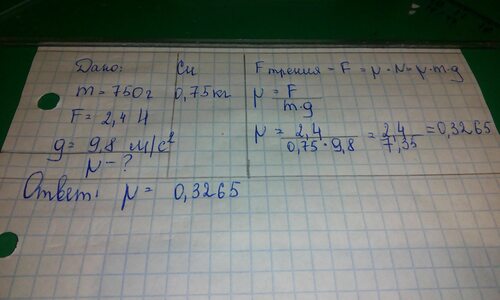 Дано:
m = 750г
F = 2,4 Н
g = 9,8 м/с²
μ - ?
Си
0,75кг
F трения = F = μ · N = μ · m · g
μ = F / m · g
μ = 2,4 / 0,75 · 9,8 = 2,4 / 7,35 = 0,3265
Ответ: μ = 0,3265